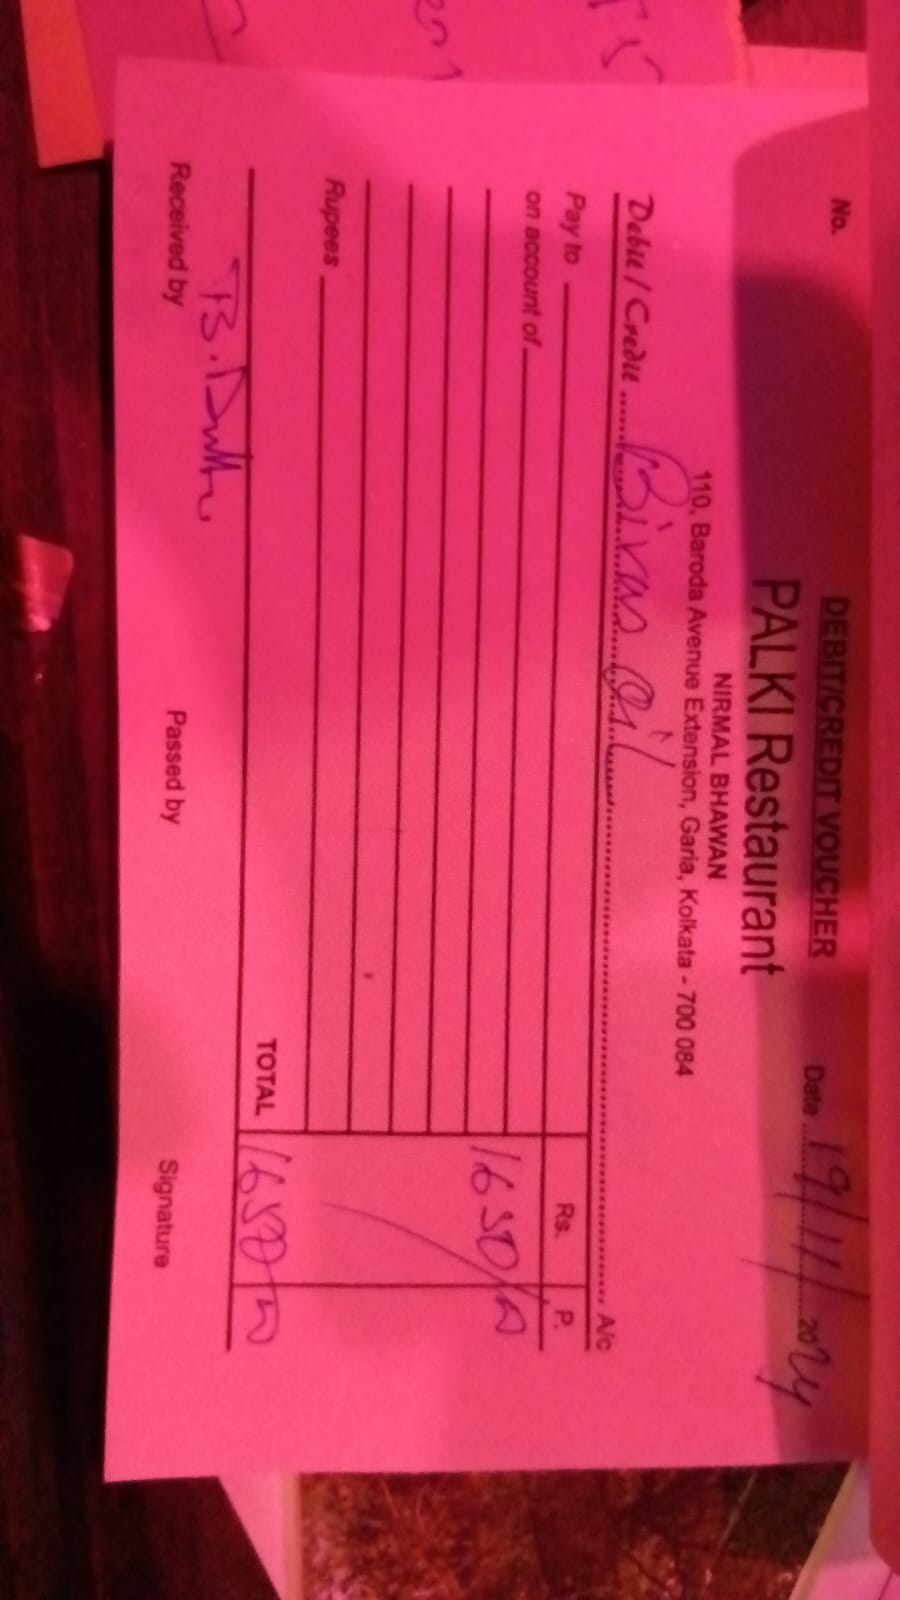 No.
DEBIT/CREDIT VOUCHER
Date 19/11/2024
PALKI Restaurant
NIRMAL BHAWAN
110, Baroda Avenue Extension, Garia, Kolkata - 700 084
Debit / Credit Oil A/c
Pay to Rs. P.
on account of
1650/
Rupees
TOTAL 1650
B. Dutta
Received by Passed by Signature